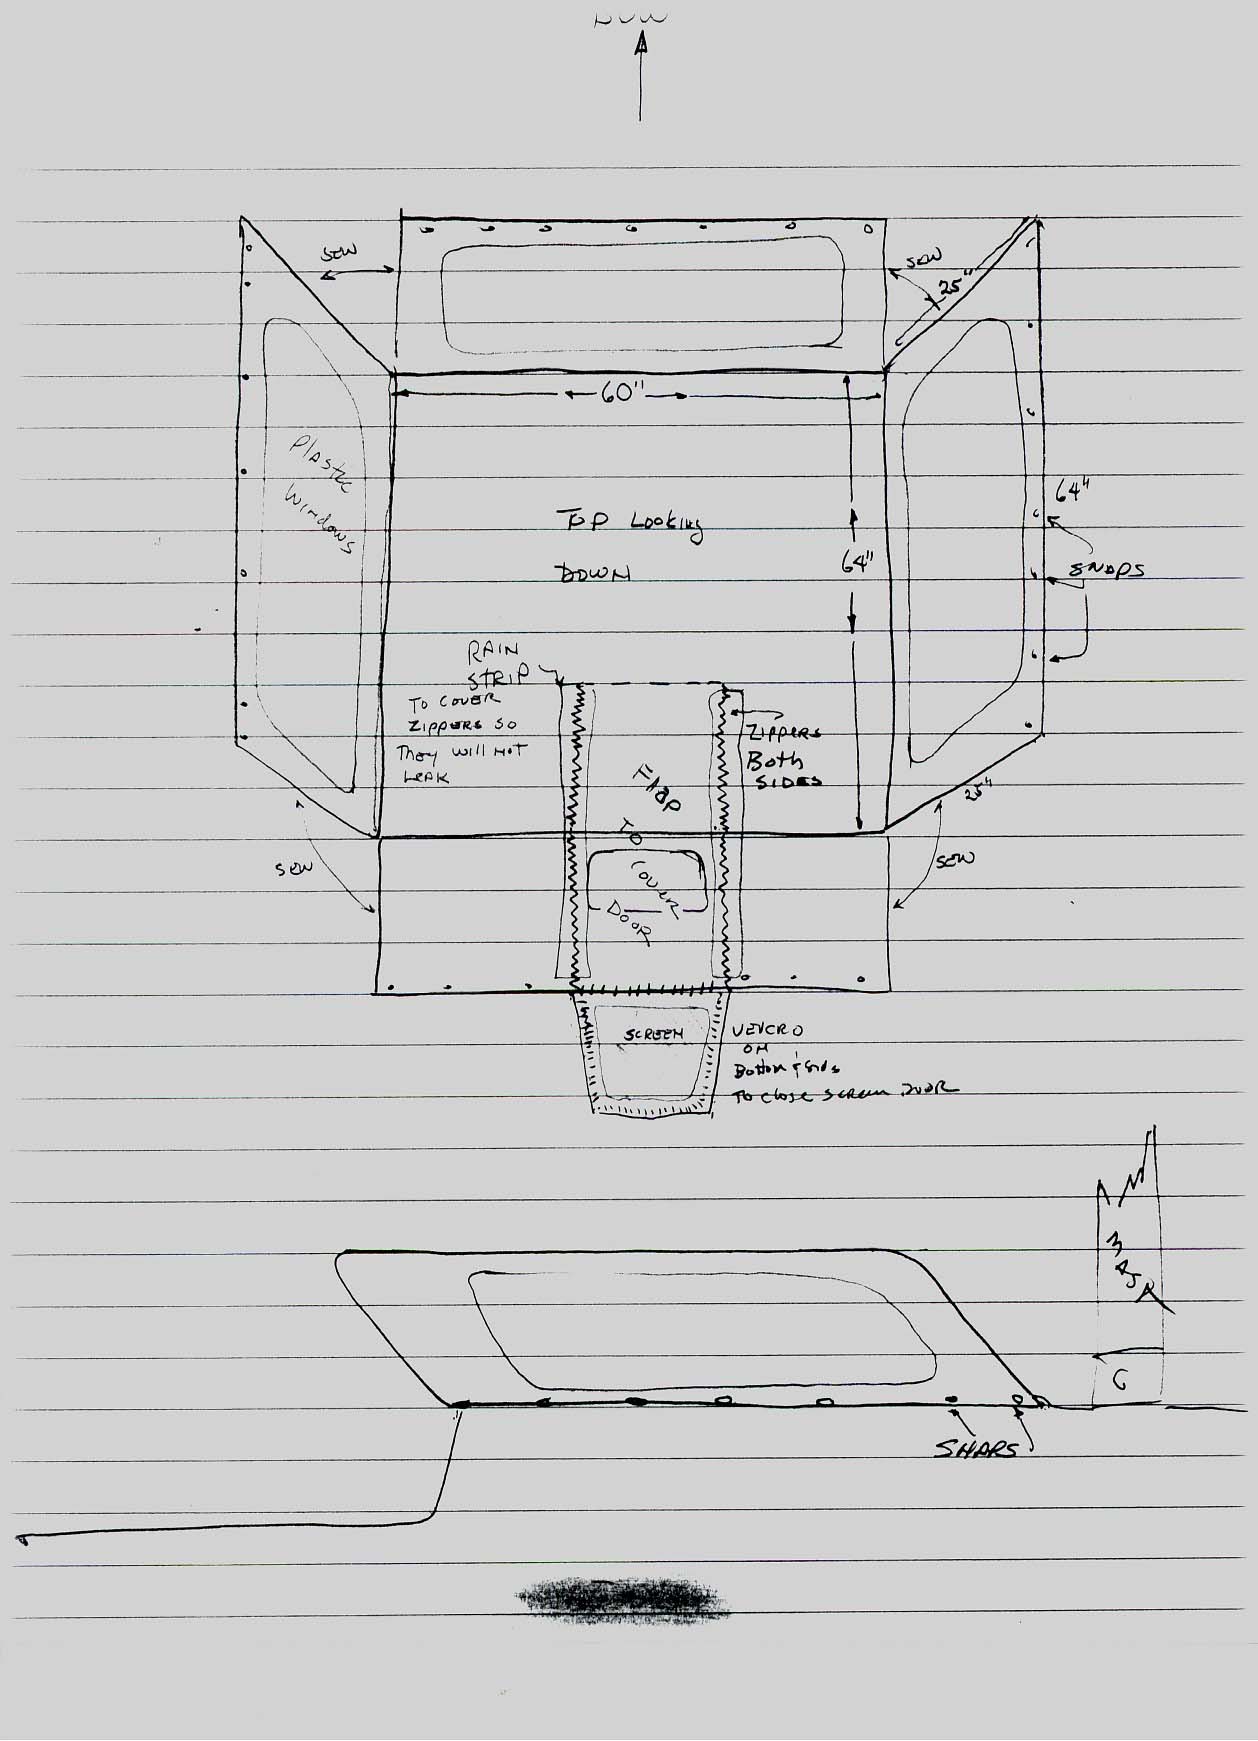 BOW
SEW
SEW
25"
60"
Plastic
Windows
64"
TOP Looking
DOWN
64"
SNAPS
RAIN
STRIP
TO COVER
ZIPPERS SO
They will NOT
LEAK
ZIPPERS
Both
SIDES
Flap
TO
COVER
DOOR
25"
SEW
SEW
SCREEN
VELCRO
ON
Bottom & Sids
TO close screen DOOR
SNAPS